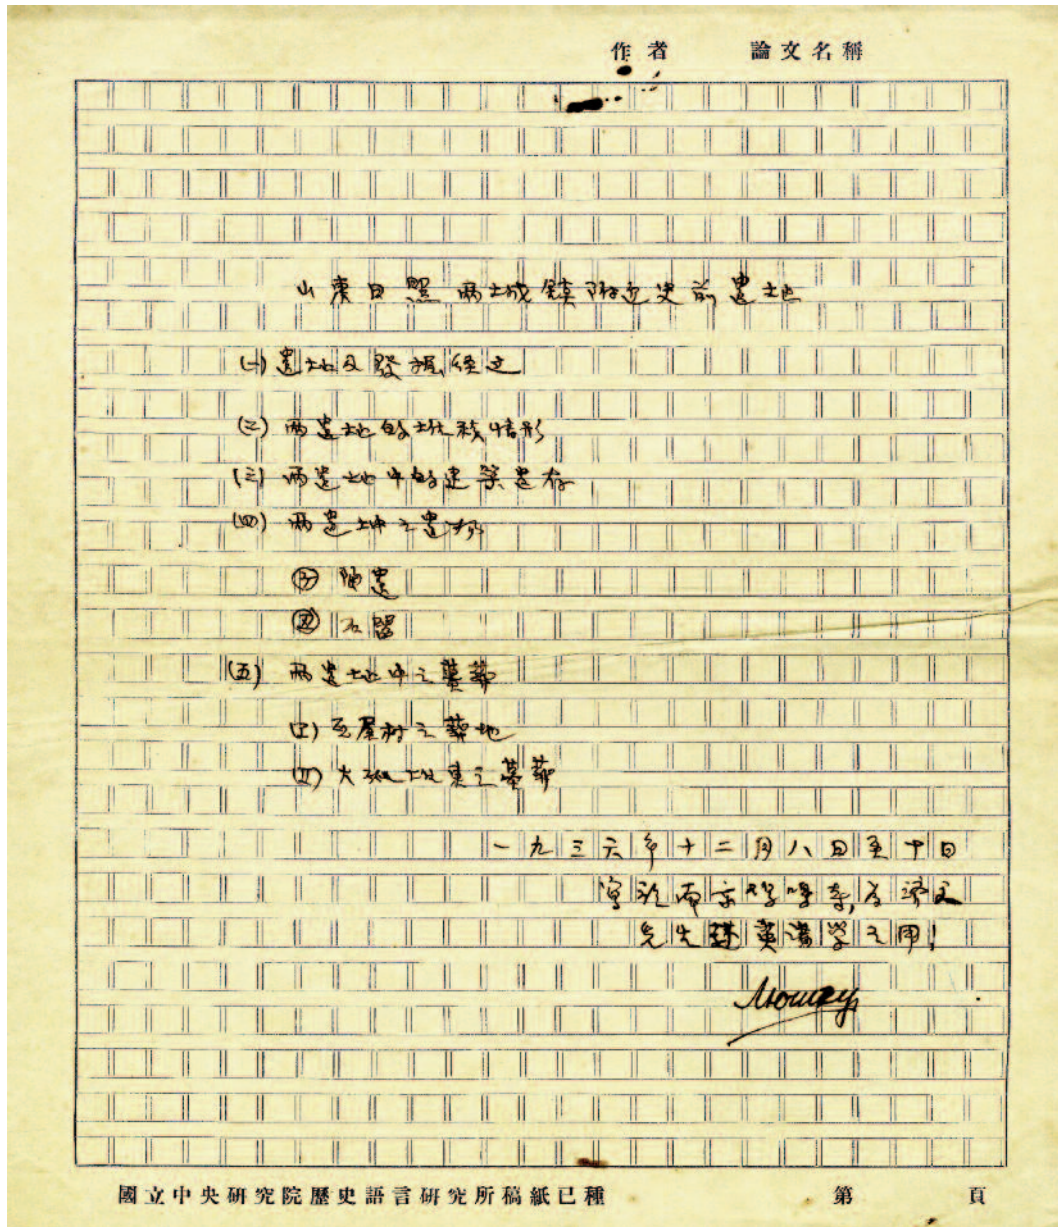 作者 論文名稱
山東日照兩城鎮附近史前遺址
(一) 遺址及發掘經過
(二) 兩遺址的堆積情形
(三) 兩遺址中的建築遺存
(四) 兩遺址中之遺物
陶
石器
(五) 兩遺址中之墓葬
(I) 瓦屋村之葬地
(II) 大孤堆東之墓葬
一九三六年十二月八日至十日
寫於南京鷄鳴寺,為濟之
先生赴英講學之用!
國立中央研究院歷史語言研究所稿紙已種 第 頁